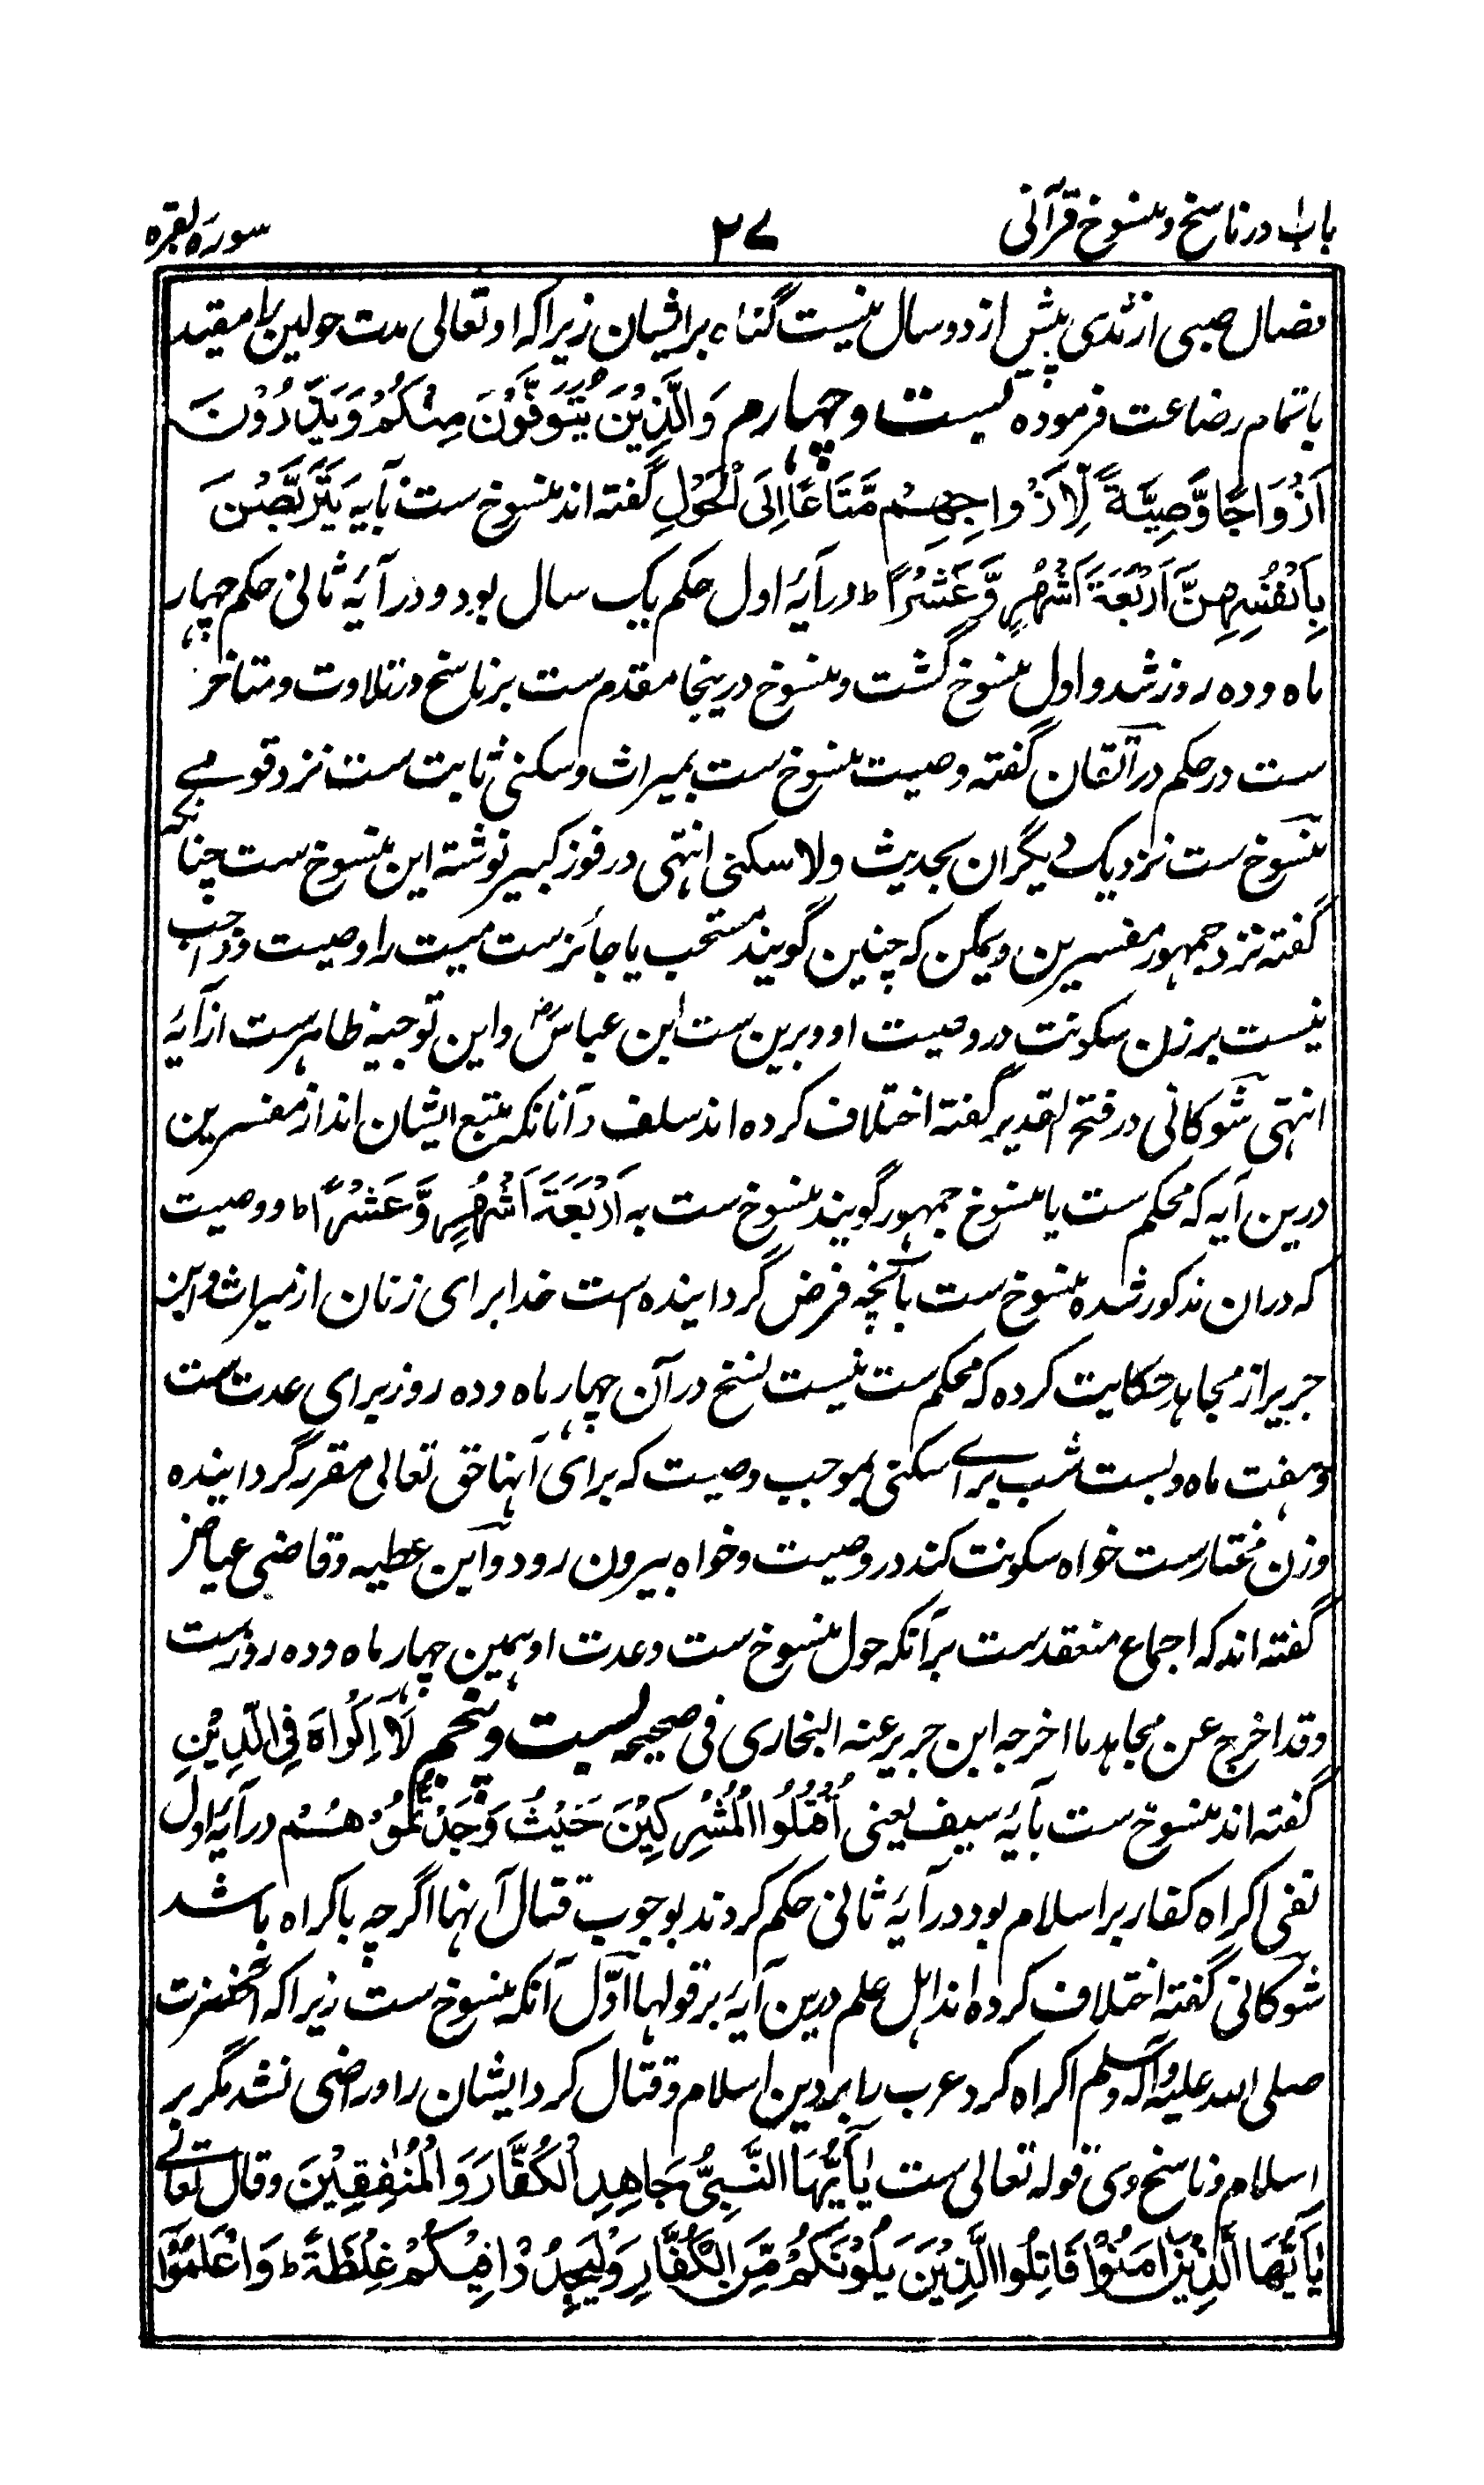 باب۱ در ناسخ و منسوخ قرآنی ۲۷ سوره بقره
فصال صبی از ثدی پیش از دو سال نیست گناه بر ایشان زیرا که او تعالی مدت حولین را مقید
باتمام رضاعت فرموده بست و چهارم وَالَّذِیْنَ یُتَوَفَّوْنَ مِنْكُمْ وَیَذَرُوْنَ
اَزْوَاجًا وَّصِیَّةً لِّاَزْوَاجِهِمْ مَّتَاعًا اِلَی الْحَوْلِ گفته اند منسوخ ست بآیه یَتَرَبَّصْنَ
بِاَنْفُسِهِنَّ اَرْبَعَةَ اَشْهُرٍ وَّعَشْرًا ط در آیۀ اول حکم یک سال بود و در آیۀ ثانی حکم چهار
ماه و ده روز شد و اول منسوخ گشت و منسوخ درینجا مقدم ست بر ناسخ در تلاوت و متاخر
ست در حکم در اتقان گفته وصیت منسوخ ست بمیراث و سکنی ثابت ست نزد قومے
منسوخ ست نزدیک دیگران بحدیث ولا سکنی انتهی در فوز کبیر نوشته این منسوخ ست چنانکه
گفته نزد جمهور مفسرین و یمکن که چنین گویند مستحب یا جائز ست میت را وصیت و واجب
نیست بر زن سکونت در وصیت او و برین ست ابن عباسؓ و این توجیه ظاهر ست از آیۀ
انتهی شوکانی در فتح القدیر گفته اختلاف کرده اند سلف و آنانکه متبع ایشان اند از مفسرین
درین آیه که محکم ست یا منسوخ جمهور گویند منسوخ ست به اَرْبَعَةَ اَشْهُرٍ وَّعَشْرًا ط و وصیت
که دران مذکور شده منسوخ ست بآنچه فرض گردانیده است خدا برای زنان از میراث و ابن
جریر از مجاهد حکایت کرده که محکم ست نیست نسخ در آن چهار ماه و ده روز برای عدت ست
و هفت ماه و بست شب برای سکنی بموجب وصیت که برای آنها حق تعالی مقرر گردانیده
و زن مختار ست خواه سکونت کند در وصیت و خواه بیرون رود و ابن عطیه و قاضی عیاض
گفته اند که اجماع منعقد ست بر آنکه حول منسوخ ست و عدت او همین چهار ماه و ده روز ست
و قد اخرج عن مجاهد ما اخرجه ابن جریر عنه البخاری فی صحیحه بست و پنجم لَاۤ اِكْرَاهَ فِی الدِّیْنِ
گفته اند منسوخ ست بآیۀ سیف یعنی اُقْتُلُوا الْمُشْرِكِیْنَ حَیْثُ وَجَدْتُّمُوْهُمْ در آیۀ اول
نفی اکراه کفار بر اسلام بود در آیۀ ثانی حکم کردند بوجوب قتال آنها اگرچه باکراه باشد
شوکانی گفته اختلاف کرده اند اهل علم درین آیۀ بر قولها اوّل آنکه منسوخ ست زیرا که آنحضرت
صلی الله علیه وآله وسلم اکراه کرد عرب را بر دین اسلام و قتال کرد ایشان را و راضی نشد مگر بر
اسلام و ناسخ وی قوله تعالی ست یٰۤاَیُّهَا النَّبِیُّ جَاهِدِ الْكُفَّارَ وَالْمُنٰفِقِیْنَ و قال تعالے
یٰۤاَیُّهَا الَّذِیْنَ اٰمَنُوْا قَاتِلُوا الَّذِیْنَ یَلُوْنَكُمْ مِّنَ الْكُفَّارِ وَلْیَجِدُوْا فِیْكُمْ غِلْظَةً ط وَاعْلَمُوْۤا